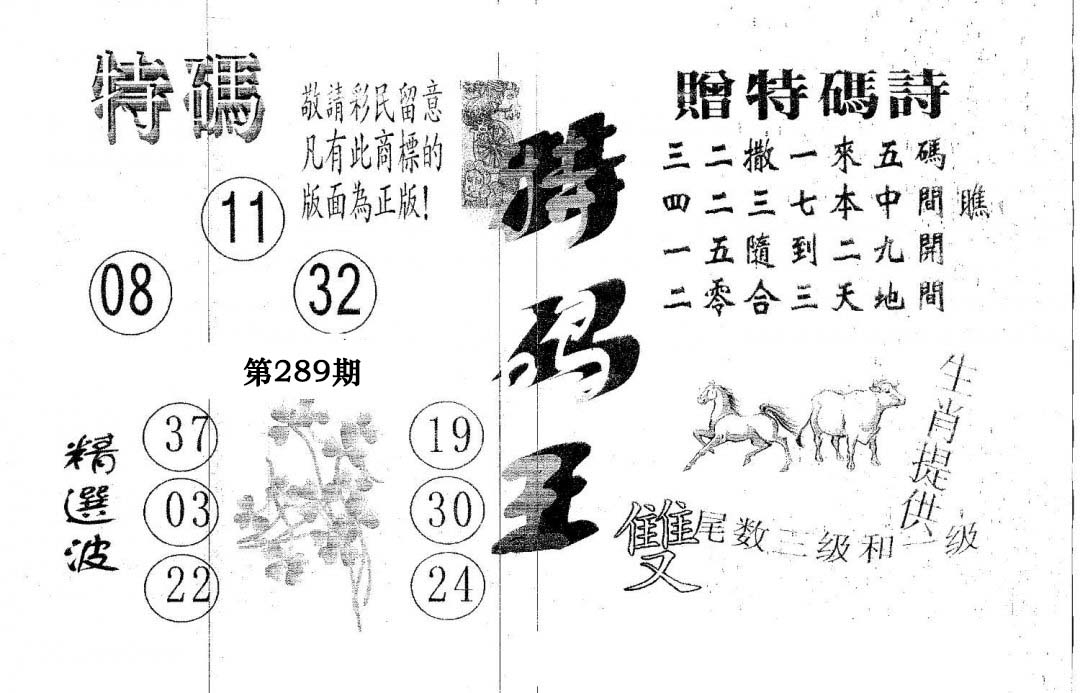 特碼
敬請彩民留意
凡有此商標的
版面為正版!
11
08
32
第289期
精選波
37
03
22
19
30
24
特码王
贈特碼詩
三二撒一來五碼
四二三七本中間瞧
一五隨到二九開
二零合三天地間
生肖提供
雙
尾数二级和一级